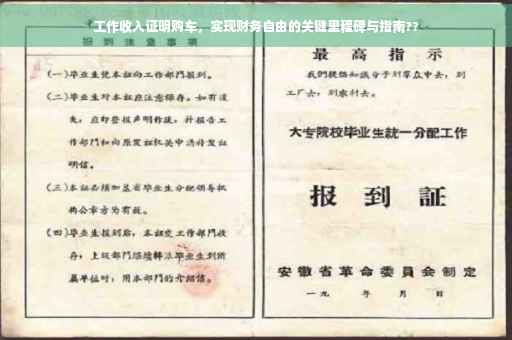 工作收入证明购车，实现财务自由的关键里程碑与指南??
报到注意事项
(一)毕业生凭本证向工作部门报到。
(二)毕业生对本证应注意保存。如有遗
失，应即登报声明作废，并报告工
作部门和向原发证机关申请补发证
明信。
(三)本证必须加盖省毕业生分配领导机
构公章方为有效。
(四)毕业生报到后，本证交工作部门收
存；上级部门继续转派毕业生到所
属单位时，用本部门的介绍信。
最高指示
我们提倡知识分子到群众中去，到
工厂去，到农村去。
大专院校毕业生統一分配工作
报到証
安徽省革命委員会制定
一九 年 月 日